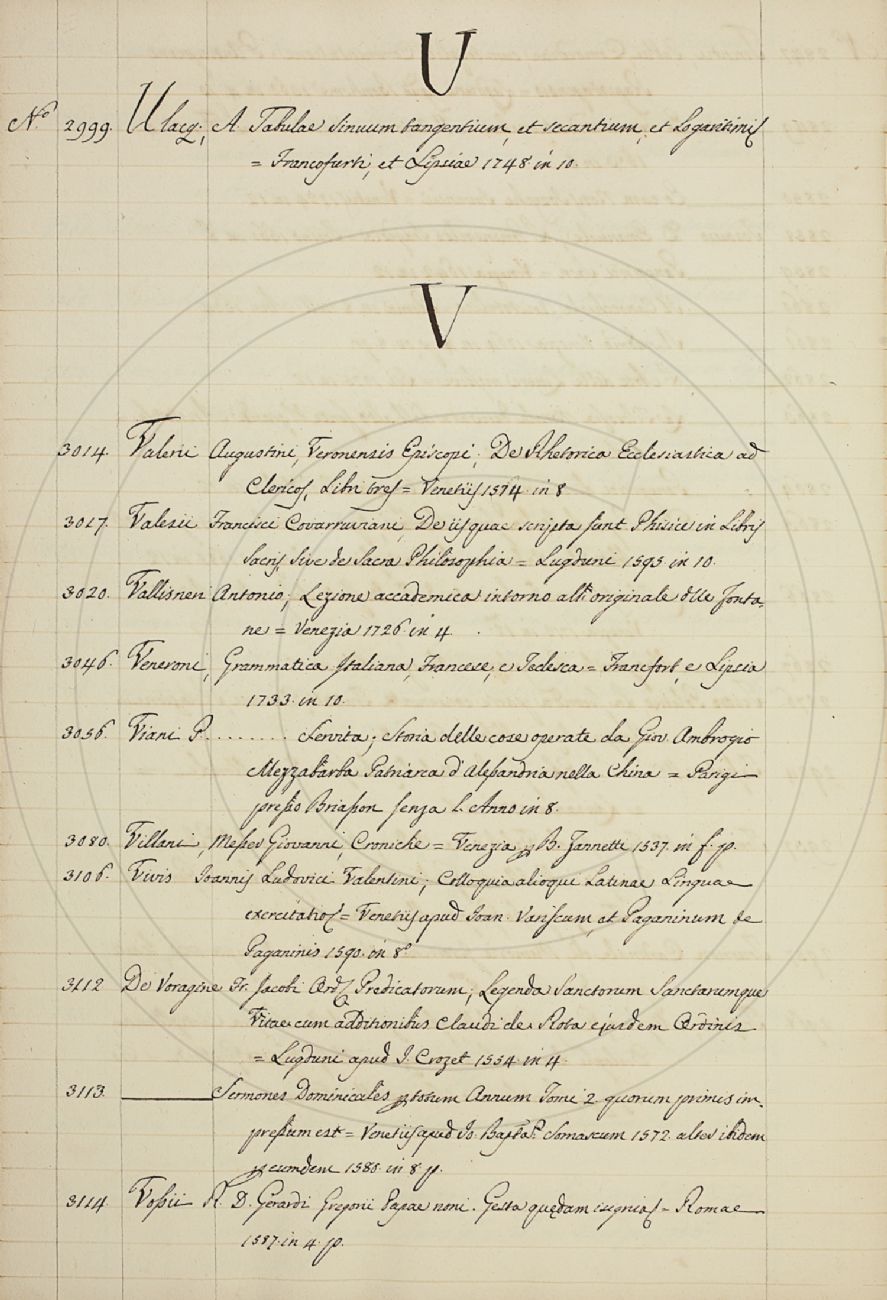 U
N.º 2999. Ulacq; A. Tabulae Sinuum tangentium, et secantium, et Logaritmis
= Francofurti, et Lipsiae 1748. in 10.
V
3014. Valerii Augustini, Veronensis Episcopi; De Rhetorica Ecclesiastica ad
Clericos, Libri tres = Venetiis 1574. in 8
3017. Valesii Francisci Covarruviani, De iis quae scripta sunt Phisice in Libris
Sacris, sive de Sacra Philosophia = Lugduni 1595. in 10.
3020. Vallisneri Antonio; Lezione accademica intorno all'originale delle fonta-
ne = Venezia 1726. in 4.
3046. Veneroni, Grammatica Italiana, Francese, e Tedesca = Francfort, e Lipsia
1733. in 10.
3056. Viani P. ........ Servita; Storia delle cose operate da Giov. Ambrogio
Mezzabarba Patriarca d'Alessandria nella China = Parigi
presso Briasson senza l'Anno in 8.
3080. Villani, Messer Giovanni, Croniche = Venezia p B. Zannetti 1537. in f. p.
3106. Vivis Joannis Ludovici Valentini; Colloquia alioqui Latinae Linguae
exercitatios = Venetiis apud Joan. Variscum, et Paganinum de
Paganinis 1590. in 8º
3112 De Voragine Fr. Jacobi Ord. Predicatorum; Legenda Sanctorum Sanctarumque
Vitae cum additionibus Claudi de Rota ejusdem Ordinis
= Lugduni apud J. Crozet 1554. in 4.
3113. Sermones Dominicales p totum Annum Tomi 2. quorum primus im-
pressum est = Venetiis apud Jo. Bapta. Somascum 1572. alter ibidem
p eumdem 1586. in 8. p.
3114. Vossii R. D. Gerardi Gregorii Papae noni. Gesta quędam insignias = Romae
1587. in 4. p.